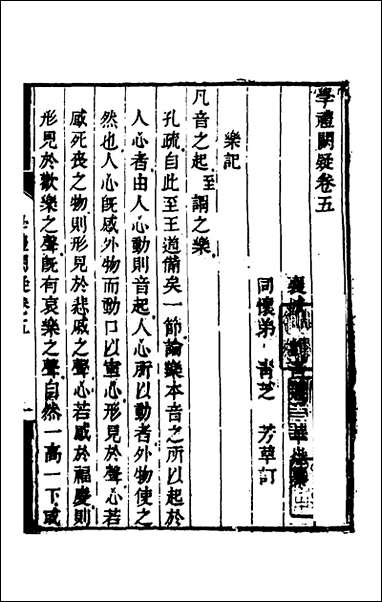 學禮闕疑卷五
同懷弟 青芝 芳草訂
樂記
凡音之起至謂之樂
孔疏自此至王道備矣一節論樂本音之所以起於
人心者由人心動則音起人心所以動者外物使之
然也人心旣感外物而動口以宣心形見於聲心若
感死喪之物則形見於悲戚之聲心若感於福慶則
形見於歡樂之聲旣有哀樂之聲自然一高一下或